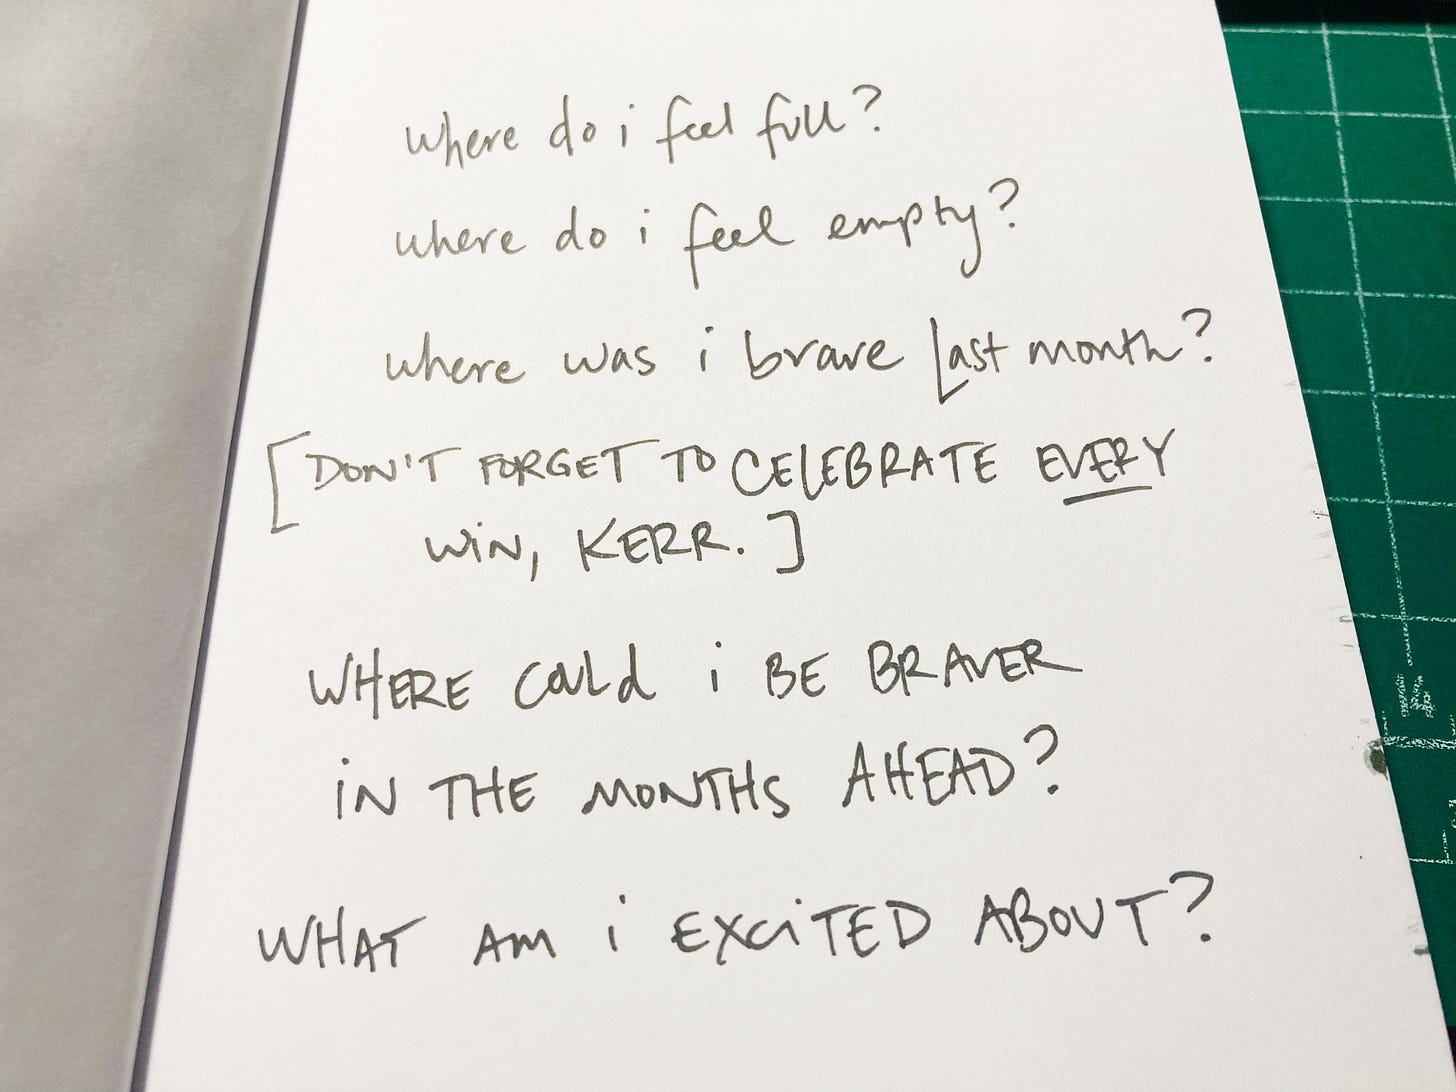 where do i feel full?
where do i feel empty?
where was i brave last month?
[DON'T FORGET TO CELEBRATE EVERY
WiN, KERR.]
WHERE COULd i BE BRAVER
iN THE MONTHS AHEAD?
WHAT AM i EXCiTED ABOUT?